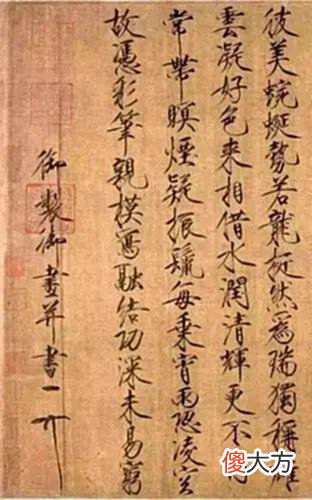 彼美蜿蜒勢若龍挺然爲瑞獨稱雄
雲凝好色来相借水潤清輝更不同
常帶瞑煙疑振鬣每乘宵雨恐凌空
故憑彩筆親模寫融結功深未易窮
御製御畫并書
傻大方